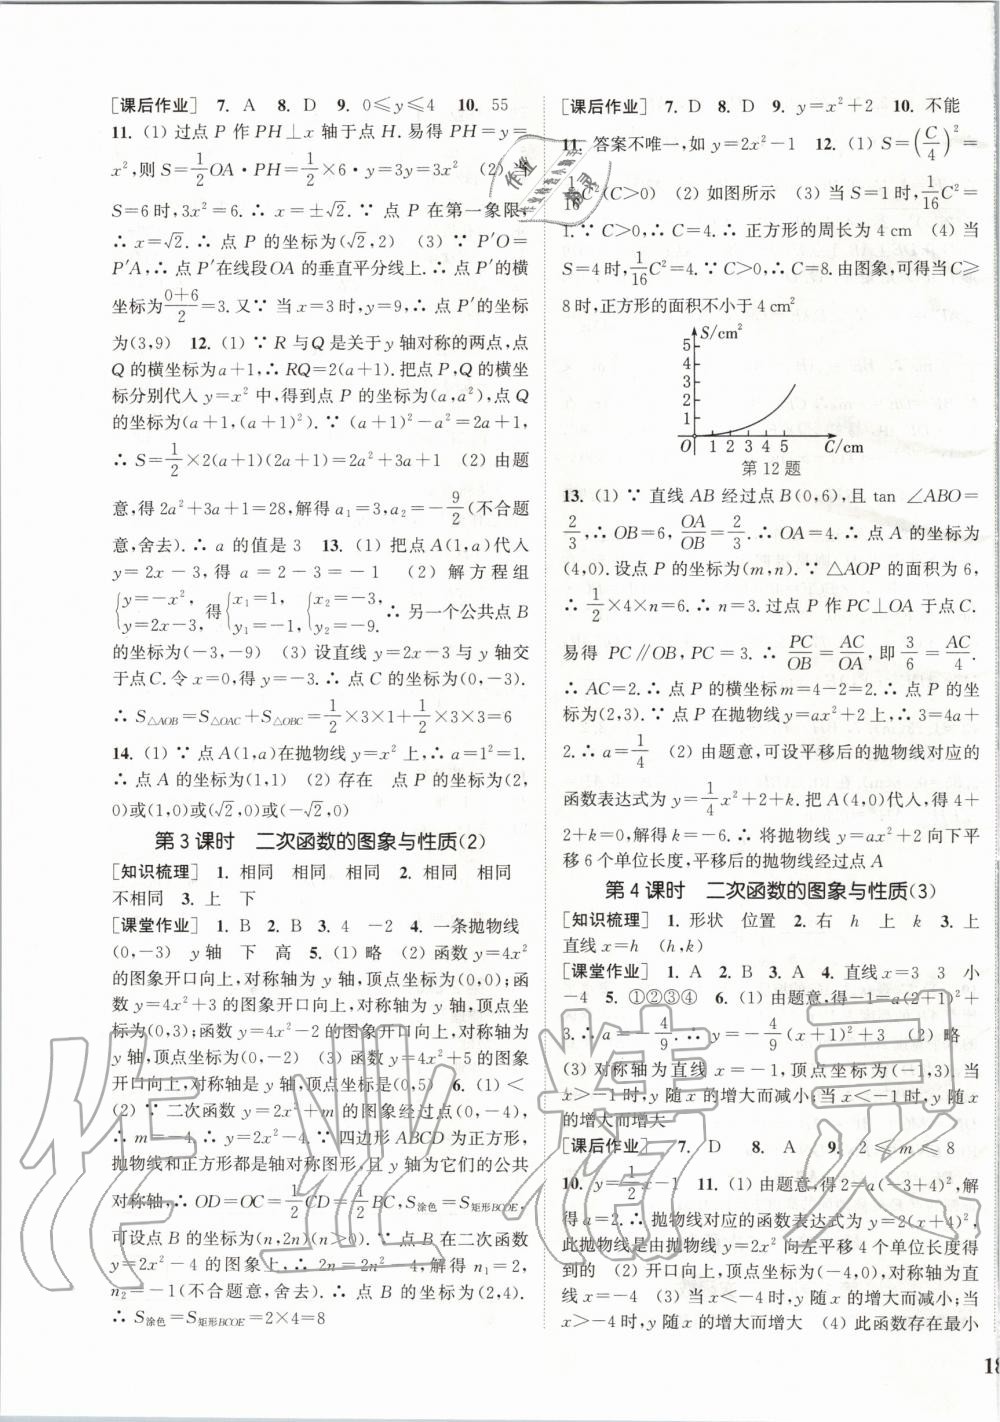 [课后作业] 7. A 8. D 9. 0≤y≤4 10. 55
11. (1) 过点 P 作 PH⊥x 轴于点 H. 易得 PH=y=
x²,则 S=1/2 OA·PH=1/2×6·y=3y=3x² (2) 当
S=6时,3x²=6.∴ x=±√2.∵ 点 P 在第一象限,
∴ x=√2.∴ 点 P 的坐标为(√2,2) (3) ∵ P′O=
P′A,∴ 点 P′在线段OA 的垂直平分线上.∴ 点 P′的横
坐标为(0+6)/2=3.又∵ 当 x=3时,y=9,∴ 点 P′的坐标
为(3,9) 12. (1) ∵ R 与Q 是关于y 轴对称的两点,点
Q 的横坐标为a+1,∴ RQ=2(a+1).把点P,Q 的横坐
标分别代入 y=x² 中,得到点 P 的坐标为(a,a²),点 Q
的坐标为(a+1,(a+1)²).∵ (a+1)²-a²=2a+1,
∴ S=1/2×2(a+1)(2a+1)=2a²+3a+1 (2) 由题
意,得 2a²+3a+1=28,解得 a₁=3,a₂=-9/2(不合题
意,舍去).∴ a 的值是 3 13. (1) 把点A(1,a)代入
y=2x-3,得 a=2-3=-1 (2) 解方程组
{y=-x², y=2x-3, 得{x₁=1, y₁=-1, {x₂=-3, y₂=-9. ∴ 另一个公共点 B
的坐标为(-3,-9) (3) 设直线 y=2x-3 与 y 轴交
于点C.令 x=0,得y=-3.∴ 点 C 的坐标为(0,-3).
∴ S△AOB=S△OAC+S△OBC=1/2×3×1+1/2×3×3=6
14. (1) ∵ 点A(1,a)在抛物线 y=x² 上,∴ a=1²=1.
∴ 点 A 的坐标为(1,1) (2) 存在 点 P 的坐标为(2,
0)或(1,0)或(√2,0)或(-√2,0)
第 3 课时 二次函数的图象与性质(2)
[知识梳理] 1. 相同 相同 相同 2. 相同 相同
不相同 3. 上 下
[课堂作业] 1. B 2. B 3. 4 -2 4. 一条抛物线
(0,-3) y 轴 下 高 5. (1) 略 (2) 函数 y=4x²
的图象开口向上,对称轴为 y 轴,顶点坐标为(0,0);函
数 y=4x²+3 的图象开口向上,对称轴为 y 轴,顶点坐
标为(0,3);函数 y=4x²-2 的图象开口向上,对称轴为
y 轴,顶点坐标为(0,-2) (3) 函数 y=4x²+5 的图象
开口向上,对称轴是 y 轴,顶点坐标是(0,5) 6. (1) <
(2) ∵ 二次函数 y=2x²+m 的图象经过点(0,-4),
∴ m=-4.∴ y=2x²-4.∵ 四边形 ABCD 为正方形,
抛物线和正方形都是轴对称图形,且 y 轴为它们的公共
对称轴,∴ OD=OC=1/2CD=1/2BC,S涂色=S矩形BCOE,
可设点 B 的坐标为(n,2n)(n>0).∵ 点 B 在二次函数
y=2x²-4 的图象上,∴ 2n=2n²-4,解得 n₁=2,
n₂=-1(不合题意,舍去).∴ 点 B 的坐标为(2,4).
∴ S涂色=S矩形BCOE=2×4=8
[课后作业] 7. D 8. D 9. y=x²+2 10. 不能
11. 答案不唯一,如 y=2x²-1 12. (1) S=(C/4)²=
1/16 C²(C>0) (2) 如图所示 (3) 当 S=1 时,1/16C²=
1.∵ C>0,∴ C=4.∴ 正方形的周长为 4 cm (4) 当
S=4时,1/16C²=4.∵ C>0,∴ C=8.由图象,可得当C≥
8时,正方形的面积不小于 4 cm²
S/cm²
5
4
3
2
1
O 1 2 3 4 5 C/cm
第 12 题
13. (1) ∵ 直线 AB 经过点 B(0,6),且 tan ∠ABO=
2/3,∴ OB=6,OA/OB=2/3.∴ OA=4.∴ 点 A 的坐标为
(4,0).设点 P 的坐标为(m,n).∵ △AOP 的面积为 6,
∴ 1/2×4×n=6.∴ n=3.过点 P 作 PC⊥OA 于点C.
易得 PC∥OB,PC=3.∴ PC/OB=AC/OA,即 3/6=AC/4.
∴ AC=2.∴ 点 P 的横坐标 m=4-2=2.∴ 点 P 的坐
标为(2,3).∵ 点 P 在抛物线 y=ax²+2 上,∴ 3=4a+
2.∴ a=1/4 (2) 由题意,可设平移后的抛物线对应的
函数表达式为 y=1/4x²+2+k.把 A(4,0)代入,得 4+
2+k=0,解得 k=-6.∴ 将抛物线 y=ax²+2 向下平
移 6 个单位长度,平移后的抛物线经过点 A
第 4 课时 二次函数的图象与性质(3)
[知识梳理] 1. 形状 位置 2. 右 h 上 k 3. 上
直线 x=h (h,k)
[课堂作业] 1. A 2. B 3. A 4. 直线x=3 3 小
-4 5. ①②③④ 6. (1) 由题意,得-1=a(2+1)²+
3.∴ a=-4/9.∴ y=-4/9(x+1)²+3 (2) 略
(3) 对称轴为直线 x=-1,顶点坐标为(-1,3). 当
x>-1时,y 随 x 的增大而减小;当 x<-1时,y 随 x
的增大而增大
[课后作业] 7. D 8. A 9. 2≤m≤8
10. y=1/2x-1 11. (1) 由题意,得 2=a(-3+4)²,解
得 a=2.∴ 抛物线对应的函数表达式为 y=2(x+4)²,
此抛物线是由抛物线 y=2x² 向左平移 4 个单位长度得
到的 (2) 开口向上,顶点坐标为(-4,0),对称轴为直
线 x=-4 (3) 当 x<-4 时,y 随 x 的增大而减小;当
x>-4时,y 随 x 的增大而增大 (4) 此函数存在最小
18
作业精灵